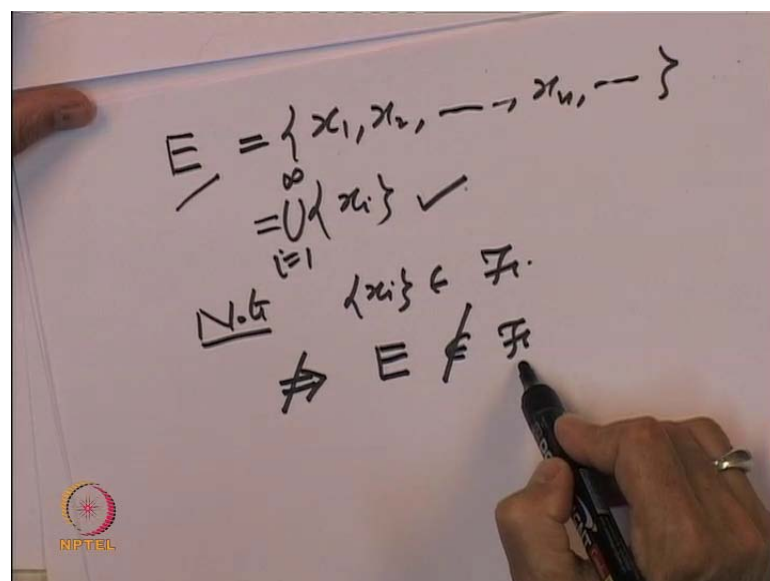 E = { x₁, x₂, ---, xₙ, --- }
= ∞ ∪ i=1 { xᵢ } ✓
Note {xᵢ} ∈ ℱ.
⇏ E ∉ ℱ
NPTEL